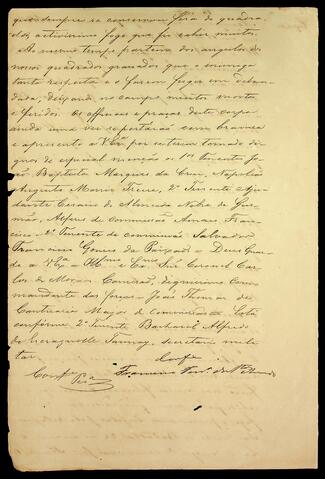 que sempre se conservou fóra de quadra
do activissimo fogo que fez sahir mortos.
Ao mesmo tempo partirão dos angulos de
nossos quadrados granadas, que o inimigo
tanto respeita e o fazem fugir em deban
dada, deixando no campo muitos mortos
e feridos. Os officiaes e praças deste corpo
ainda uma vez se portarão com bravura
e apresento a VSa por se terem tornado di
gnos de especial menção os 1os Tenentes Jo
ão Baptista Marques da Cruz, Napoleão
Augusto Moniz Freire, 2o Tenente Aju
dante Cesario de Almeida Nobre de Gus
mão, Alferes de commissão Fran
cisco 2o Tenente de commissão Salvador
Francisco Gomes da Deus Guar
de a VSa Illmo Exmo Sñr Coronel Car
los de Moraes Camisão, dignissimo com
mandante das forças João Thomaz de
Cantuaria Major de commissão. Está
conforme 2o Tenente Bacharel Alfredo
de Escragnolle Taunay, secretario mili
tar.
Confe
Francisco